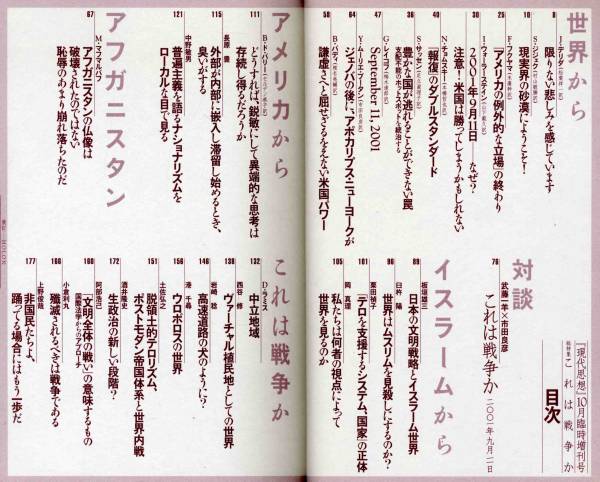 『現代思想』10月臨時増刊号
総特集 これは戦争か
目次
世界から
8
J・デリダ
限りない悲しみを感じています
10
S・ジジェク
現実界の砂漠にようこそ!
25
F・フクヤマ
「アメリカの例外的な立場」の終わり
30
I・ウォーラーステイン
2001年9月11日――なぜ?
注意!米国は勝ってしまうかもしれない
40
N・チョムスキー
「報復」のダブルスタンダード
36
S・サッセン
豊かな国が逃れることができない罠
支配不能のホットスポットを統治する
47
G・レイゴノ
September 11, 2001
64
Y・ムーリエ=ブータン
ジェノバの後に、アポカリプス・ニューヨークが
50
B・バディ
謙虚さと屈せざるをえない米国パワー
対談
76
武藤一羊×市田良彦
これは戦争か 二〇〇一年九月二一日
イスラームから
89
板垣雄三
日本の文明戦略とイスラーム世界
96
臼杵 陽
世界はムスリムを見殺しにするのか?
101
栗田禎子
「テロを支援するシステム、国家」の正体
105
岡 真理
私たちは何者の視点によって
世界を見るのか
アメリカから
111
どうすれば、鋭敏にして異端的な思考は
存続し得るだろうか
115
長原 豊
外部が内部に嵌入し滞留し始めるとき、
臭いがする
121
中野敏男
普遍主義を語るナショナリズムを
ローカルな目で見る
アフガニスタン
67
M・マフマルバフ
アフガニスタンの仏像は
破壊されたのではない
恥辱のあまり崩れ落ちたのだ
これは戦争か
132
D・ラミス
中立地域
138
西谷 修
ヴァーチャル植民地としての世界
146
岩崎 稔
高速道路の犬のように?
156
港 千尋
ウロボロスの世界
151
土佐弘之
脱領土的テロリズム、
ポストモダン帝国体系と世界内戦
172
酒井隆史
生政治の新しい段階?
160
阿部浩己
「文明全体の戦い」の意味するもの
国際法学からのアプローチ
168
小倉利丸
殲滅されるべきは戦争である
177
上野俊哉
非国民たちよ、
踊ってる場合にはもう一歩だ